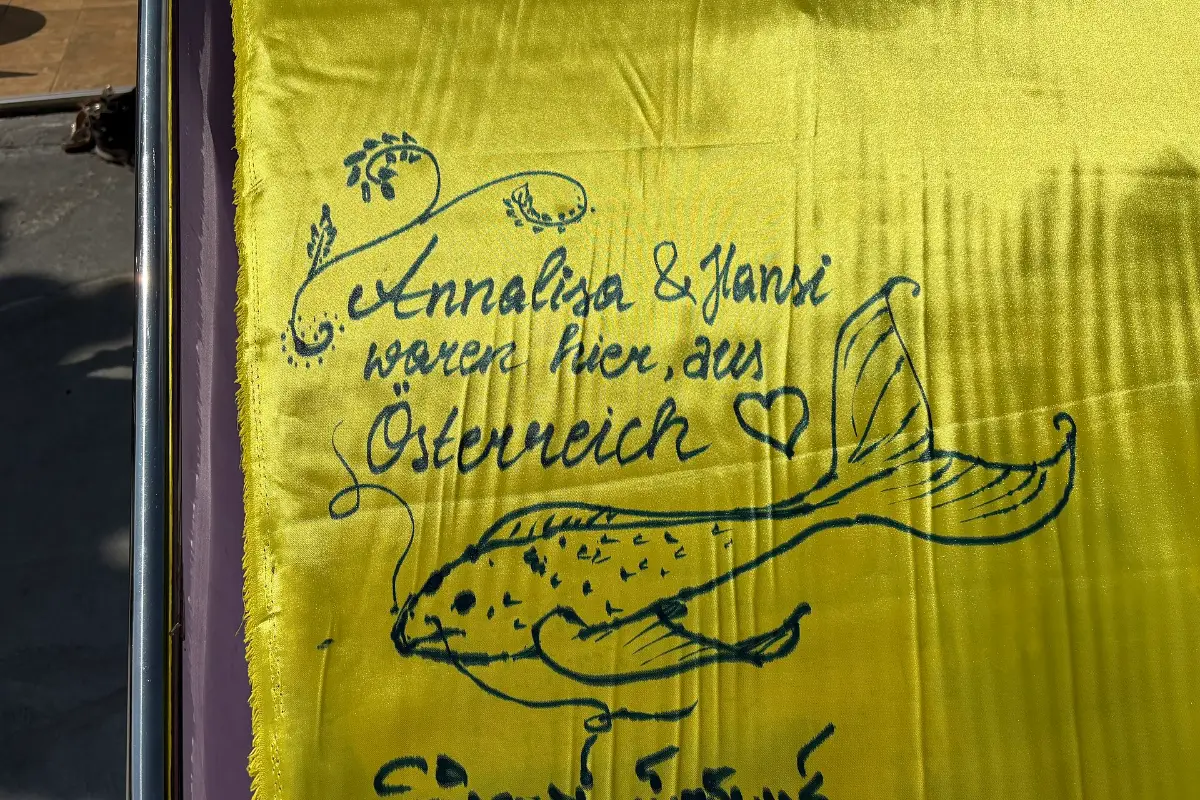 Annalisa & Hansi
waren hier, aus
Österreich ♡